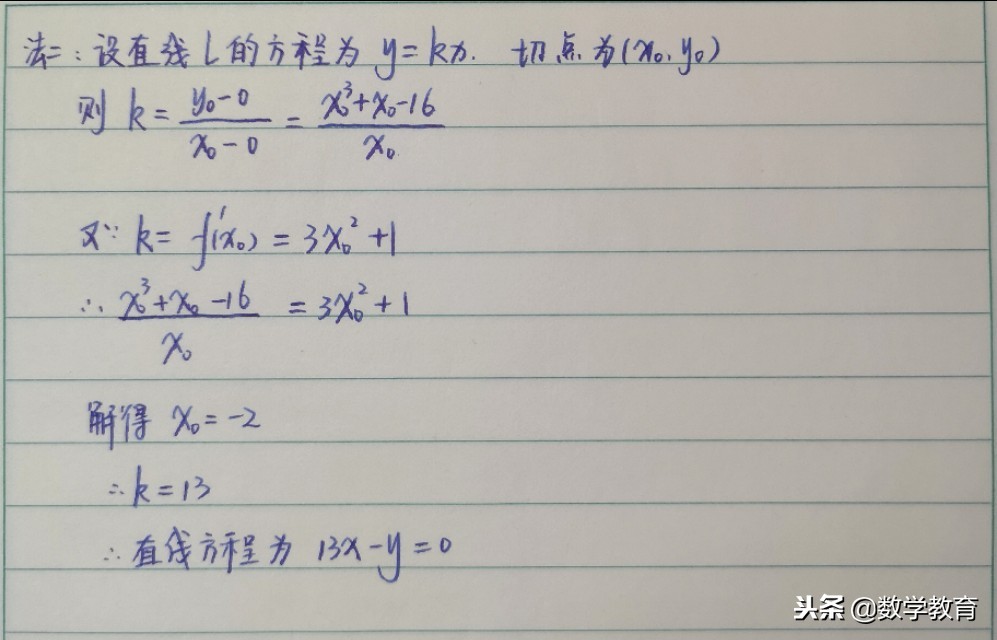 法二:设直线L的方程为 y=kx. 切点为(x₀,y₀)
则 k = (y₀-0)/(x₀-0) = (x₀³+x₀-16)/x₀
又∵ k= f'(x₀) = 3x₀²+1
∴ (x₀³+x₀-16)/x₀ = 3x₀²+1
解得 x₀=-2
∴k=13
∴直线方程为 13x-y=0
头条 @数学教育